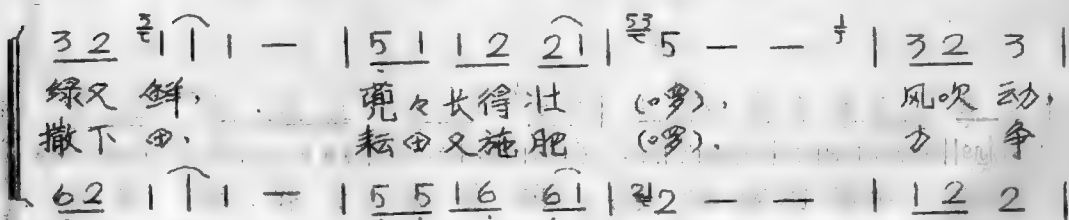 3 2 3 1 1 1 — | 5 1 1 2 2 1 | 53 5 — — | 3 2 3 |
绿又鲜, 蔸々长得壮 (啰), 风吹动,
撒下田, 耘田又施肥 (啰). 力争
6 2 1 1 1 — | 5 5 1 6 6 1 | 21 2 — — | 1 2 2 |